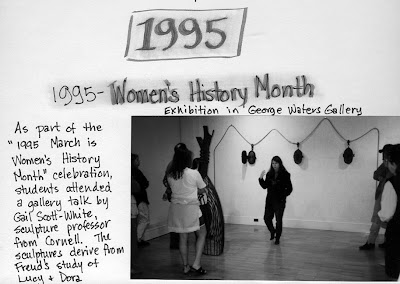 1995
1995- Women's History Month
Exhibition in George Waters Gallery
As part of the
"1995 March is
Women's History
Month" celebration,
students attended
a gallery talk by
Gail Scott-White,
sculpture professor
from Cornell. The
sculptures derive from
Freud's study of
Lucy + Dora